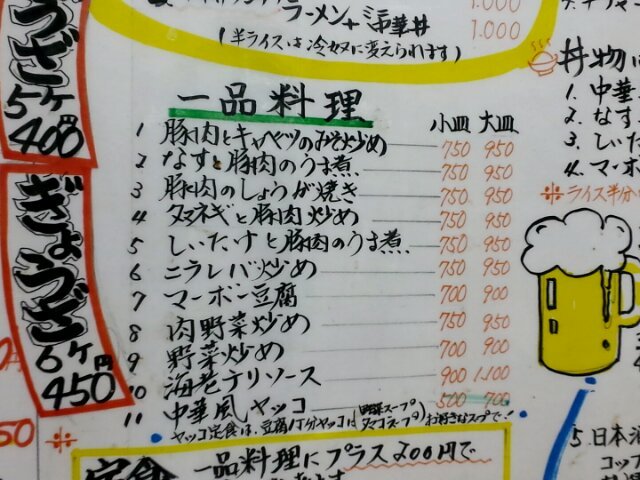 ラーメン+ミニ中華丼 1.000
(半ライスは冷奴に変えられます)
うざ
5ケ
400円
ぎょうざ
6ケ円
450
一品料理
小皿 大皿
1 豚肉とキャベツのみそ炒め 750 950
2 なすと豚肉のうま煮 750 950
3 豚肉のしょうが焼き 750 950
4 タマネギと豚肉炒め 750 950
5 しいたけと豚肉のうま煮 750 950
6 ニラレバ炒め 750 950
7 マーボー豆腐 700 900
8 肉野菜炒め 750 950
9 野菜炒め 700 900
10 海老チリソース 900 1.100
11 中華風ヤッコ 500 700
ヤッコ定食は、豆腐1丁分ヤッコに(野菜スープ タマゴスープ)お好きなスープで!
定食 一品料理にプラス200円で
丼物
1. 中華
2. なす
3. しいた
4. マーボ
※ライス半分
5. 日本酒
コップ
50 ※